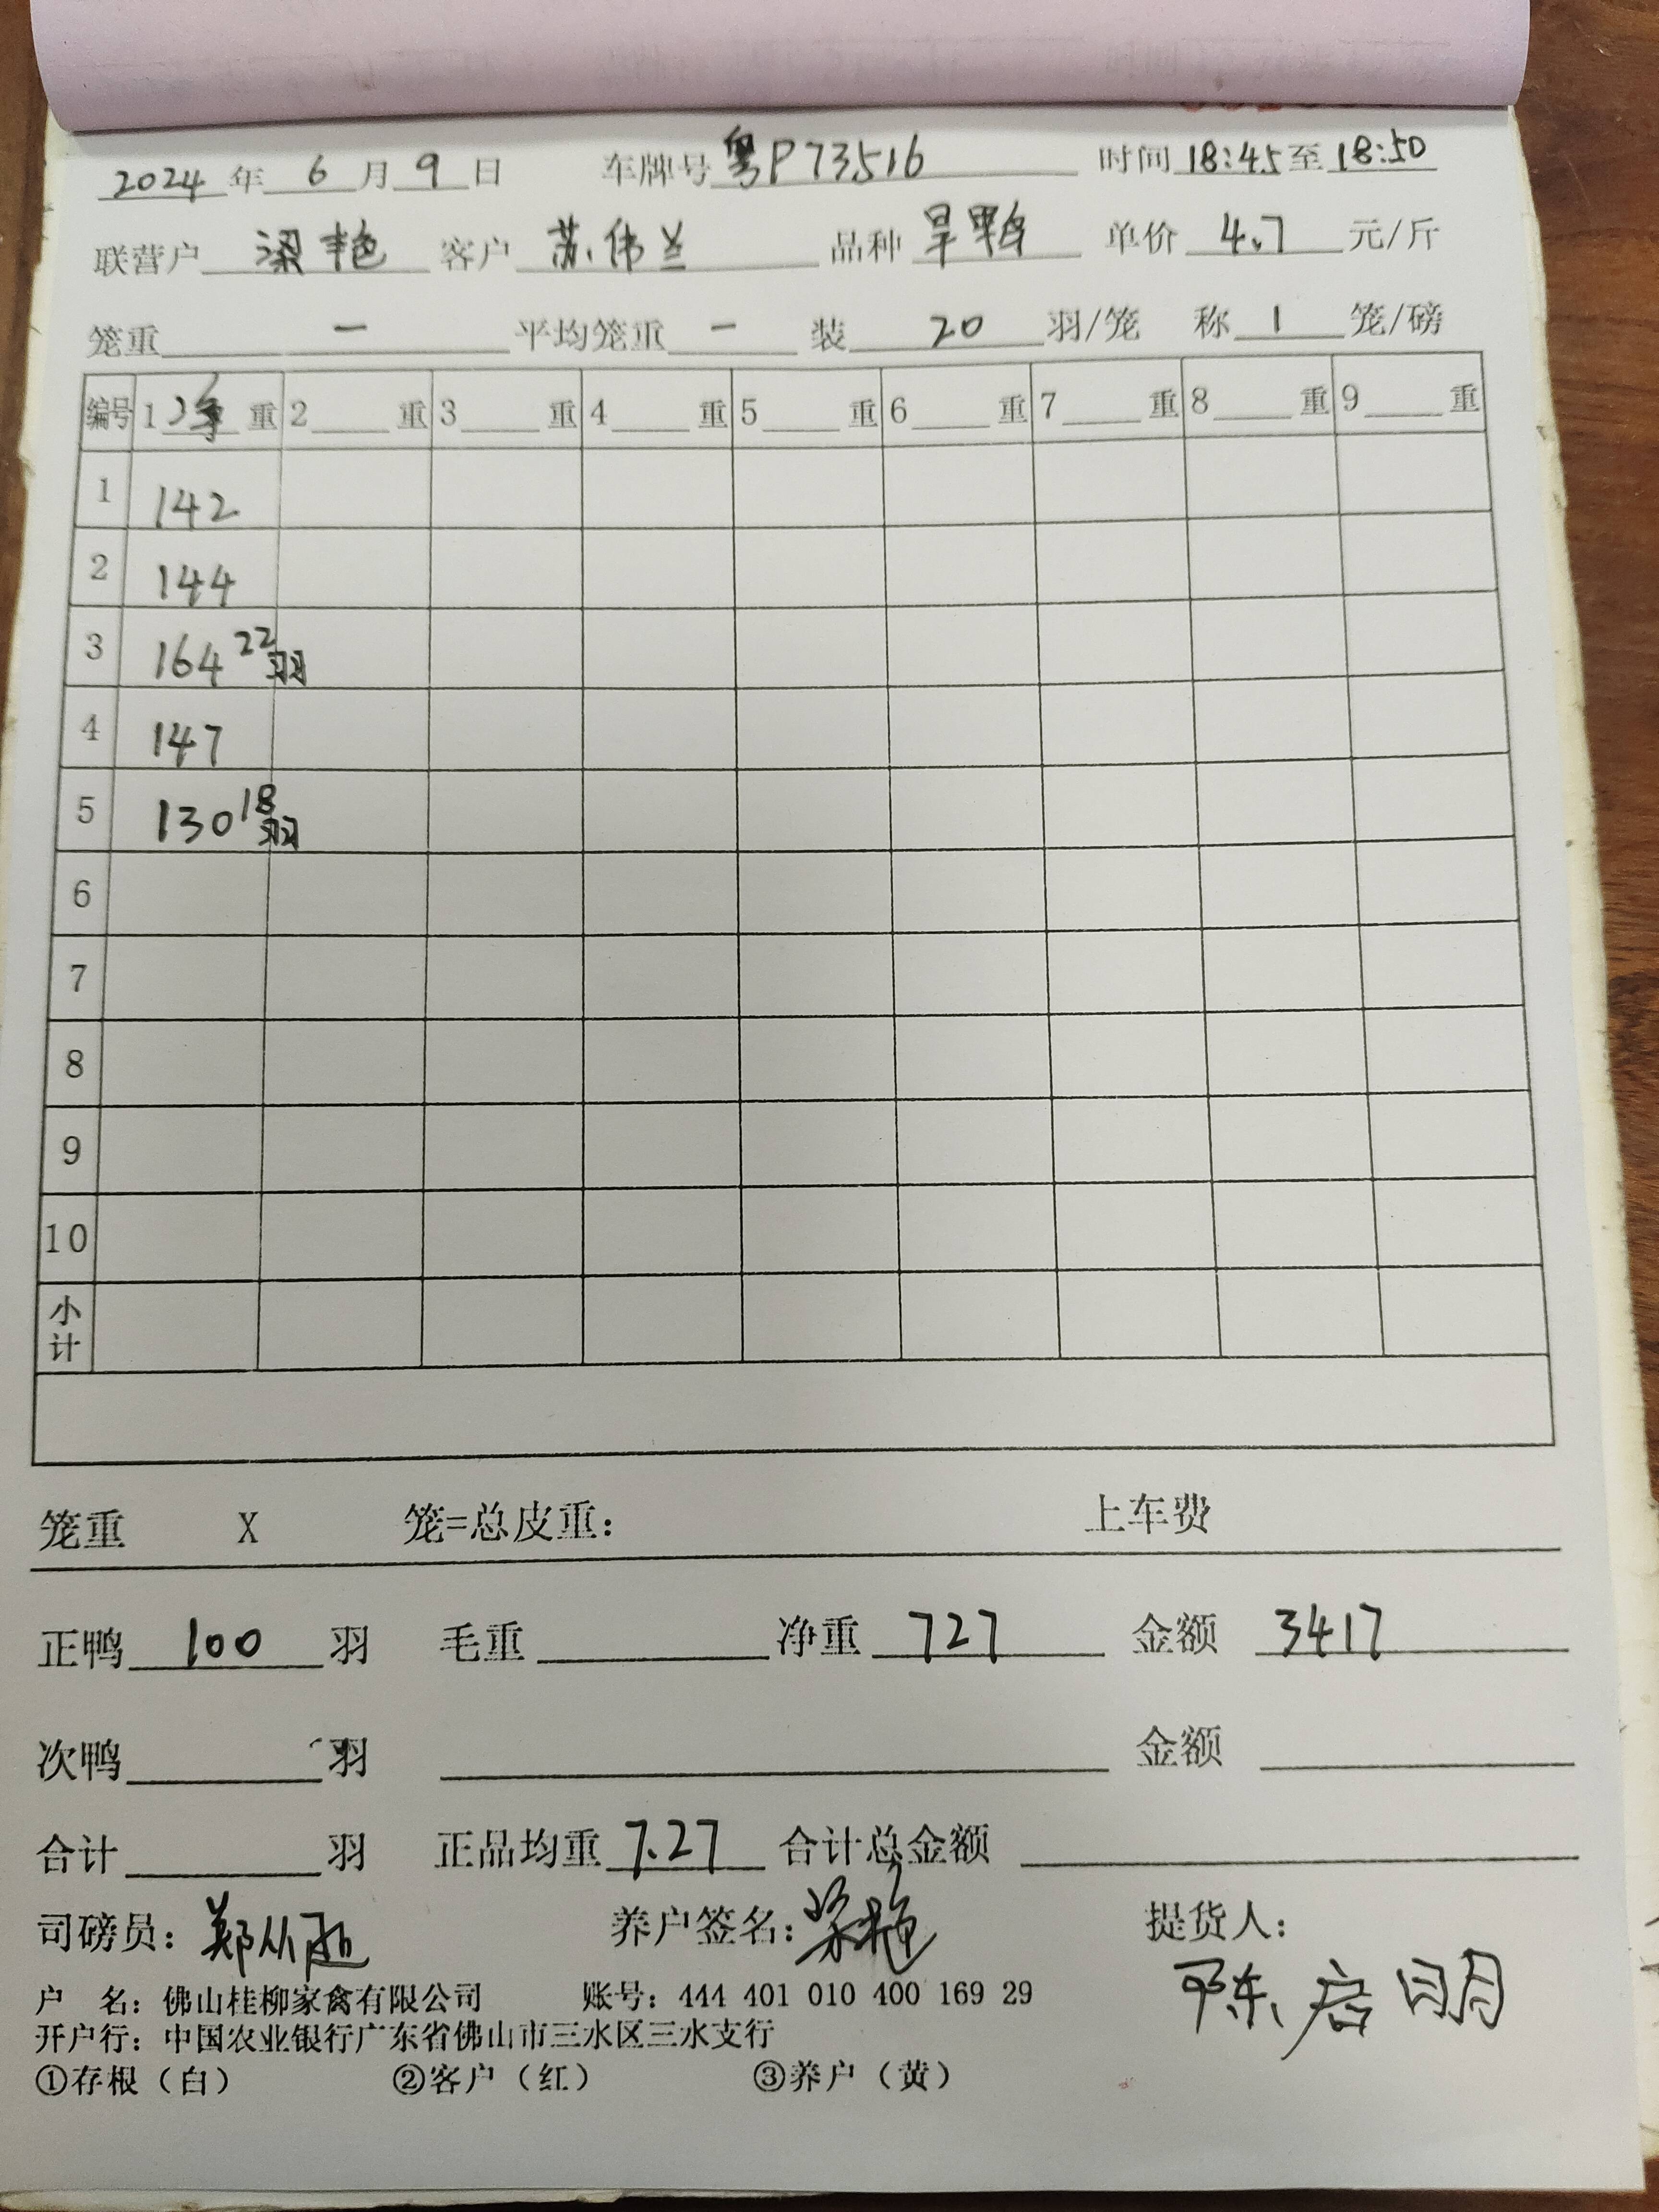 2024 年 6 月 9 日 车牌号 粤P73516 时间 18:45 至 18:50
联营户 梁艳 客户 苏伟兰 品种 旱鸭 单价 4.7 元/斤
笼重 — 平均笼重 — 装 20 羽/笼 称 1 笼/磅
编号 1 净 重 2 重 3 重 4 重 5 重 6 重 7 重 8 重 9 重
1 142
2 144
3 164 22羽
4 147
5 130 18羽
6
7
8
9
10
小计
笼重 X 笼=总皮重: 上车费
正鸭 100 羽 毛重 净重 727 金额 3417
次鸭 羽 金额
合计 羽 正品均重 7.27 合计总金额
司磅员: 养户签名: 梁艳 提货人:
陈启明
户 名: 佛山桂柳家禽有限公司 账号: 444 401 010 400 169 29
开户行: 中国农业银行广东省佛山市三水区三水支行
①存根（白） ②客户（红） ③养户（黄）